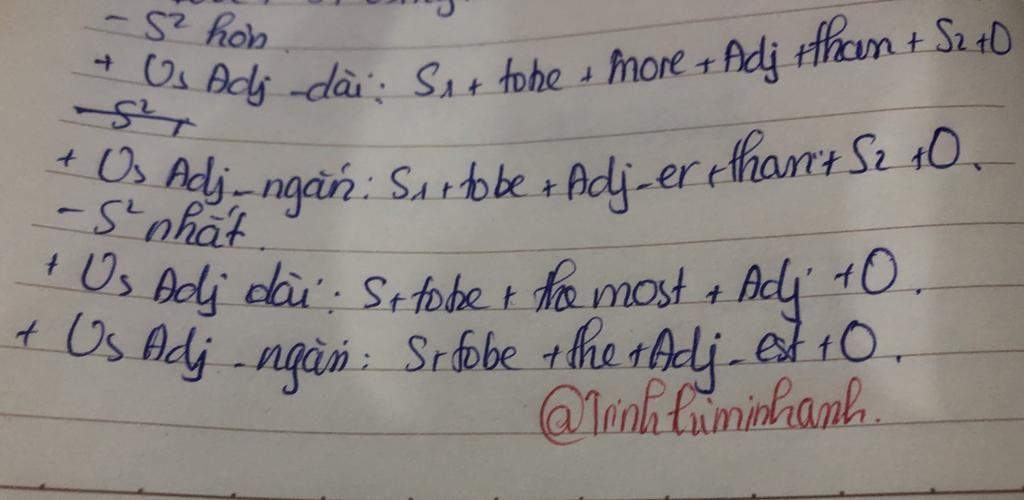 - S² hơn
+ Us Adj - dài: S1 + tobe + more + Adj + than + S2 + O
- S²
+ Us Adj - ngắn: S1 + tobe + Adj - er + than + S2 + O.
- S² nhất.
+ Us Adj dài: S + tobe + the most + Adj + O.
+ Us Adj - ngắn: S + tobe + the + Adj - est + O.
@Trinhtuminhanh.